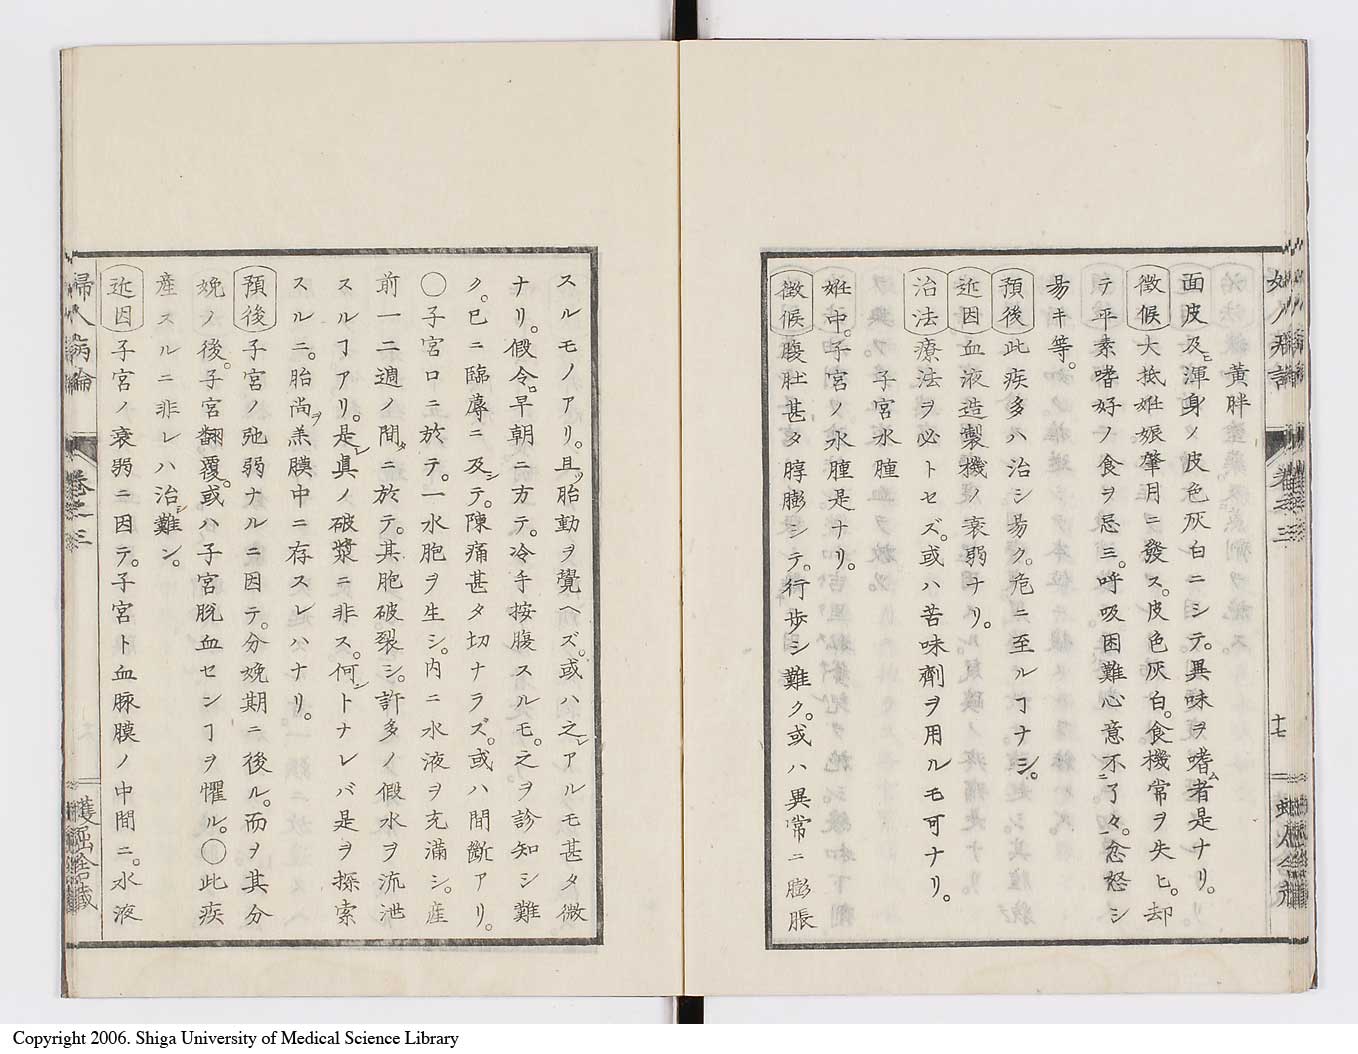 黄胖
面皮及ヒ渾身ノ皮色灰白ニシテ。異味ヲ嗜ム者是ナリ。
徴候大抵妊娠肇月ニ發ス。皮色灰白。食機常ヲ失ヒ。却
テ平素嗜好ノ食ヲ忌ミ。呼吸困難心意不了々。忿怒シ
昜キ等。
預後此疾多ハ治シ昜ク。危ニ至ルヿナシ。
近因血液造製機ノ衰弱ナリ。
治法療法ヲ必トセズ。或ハ苦味劑ヲ用ルモ可ナリ。
子宮水腫
妊中。子宮ノ水腫是ナリ。
徴候腹肚甚タ脝膨シテ。行歩シ難ク。或ハ異常ニ膨脹
スルモノアリ。且ツ胎動ヲ覺ヘズ。或ハ之レアルモ甚タ微
ナリ。假令ヒ早朝ニ方テ。冷手按腹スルモ。之ヲ診知シ難
ク。已ニ臨蓐ニ及シテ。陳痛甚タ切ナラズ。或ハ間斷アリ。
〇子宮口ニ於テ。一水胞ヲ生シ。内ニ水液ヲ充滿シ。産
前一二週ノ間ダニ於テ。其胞破裂シ。許多ノ假水ヲ流泄
スルヿアリ。是レ眞ノ破漿ニ非ス。何トナレバ是ヲ探索
スルニ。胎尚ヲ羔膜中ニ存スレハナリ。
預後子宮ノ弛弱ナルニ因テ。分娩期ニ後ル。而ヲ其分
娩ノ後。子宮翻覆。或ハ子宮脱血センヿヲ懼ル。〇此疾
産スルニ非レハ治シ難ン。
近因子宮ノ衰弱ニ因テ。子宮ト血脉膜ノ中間ニ。水液
婦人病論
卷之三
十七